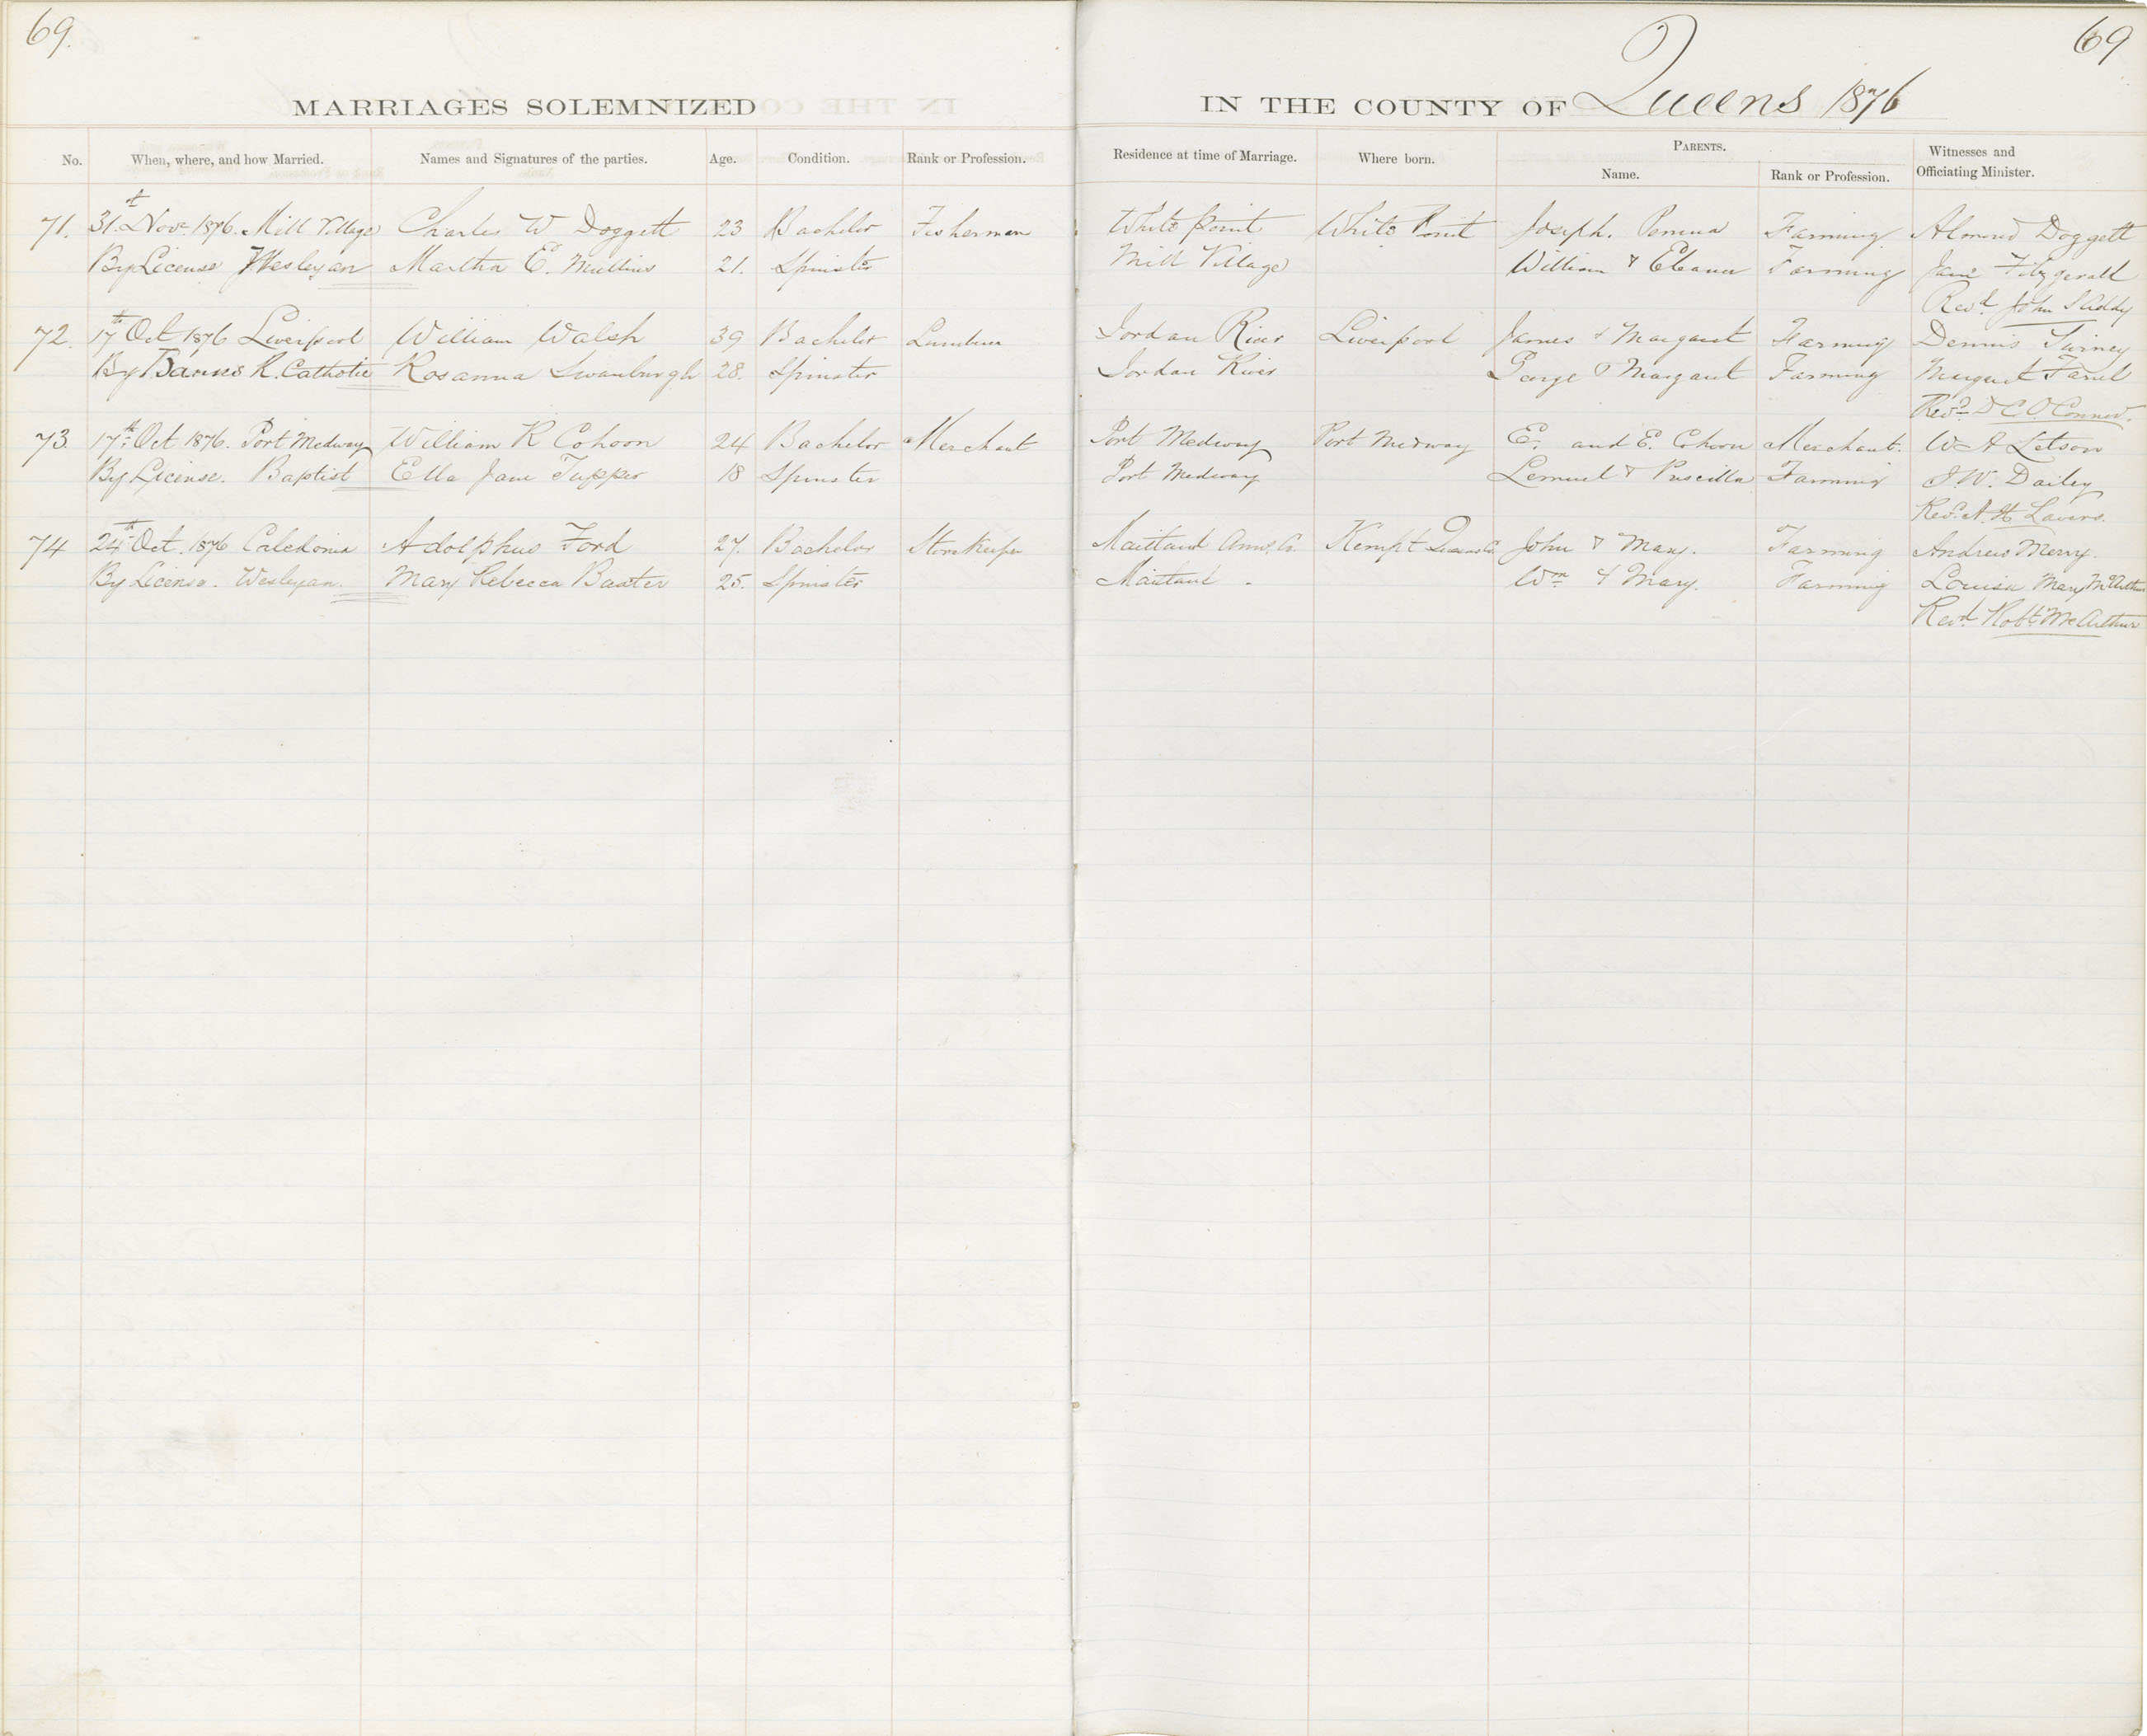 69.
69
MARRIAGES SOLEMNIZED
IN THE COUNTY OF Queens 1876
No. When, where, and how Married. Names and Signatures of the parties. Age. Condition. Rank or Profession. Residence at time of Marriage. Where born. PARENTS. Name. Rank or Profession. Witnesses and Officiating Minister.
71. 31st Novr 1876. Mill Village Charles W Doggett 23 Bachelor Fisherman White Point White Point Joseph. Farming. Doggett
By License Wesleyan Martha E. Mullins 21. Spinster Mill Village William & Eleanor Farming Fitzgerald
Revd. John
72. 17th Oct 1876 Liverpool William Walsh 39 Bachelor Jordan River Liverpool James & Margaret Farming Dennis
By Banns R. Catholic Rosanna Swanburgh 28. Spinster Jordan River George & Margaret Farming Margaret
Revd. D C O'Connor.
73. 17th Oct 1876. Port Medway William R Cohoon 24 Bachelor Merchant Port Medway Port Medway E. and E. Cohoon Merchant. W A Letson
By License. Baptist Ella Jane Tupper 18 Spinster Port Medway Lemuel & Priscilla Farming J. W. Dailey
Revd. A. H. Lavers.
74 24th Oct. 1876 Caledonia Adolphus Ford 27. Bachelor Storekeeper Maitland Anns. Co. Kempt Queens Co. John & Mary. Farming Andrew Merry.
By License. Wesleyan. Mary Rebecca Baxter 25. Spinster Maitland - Wm & Mary. Farming Louisa Mary McArthur
Revd Robt. McArthur